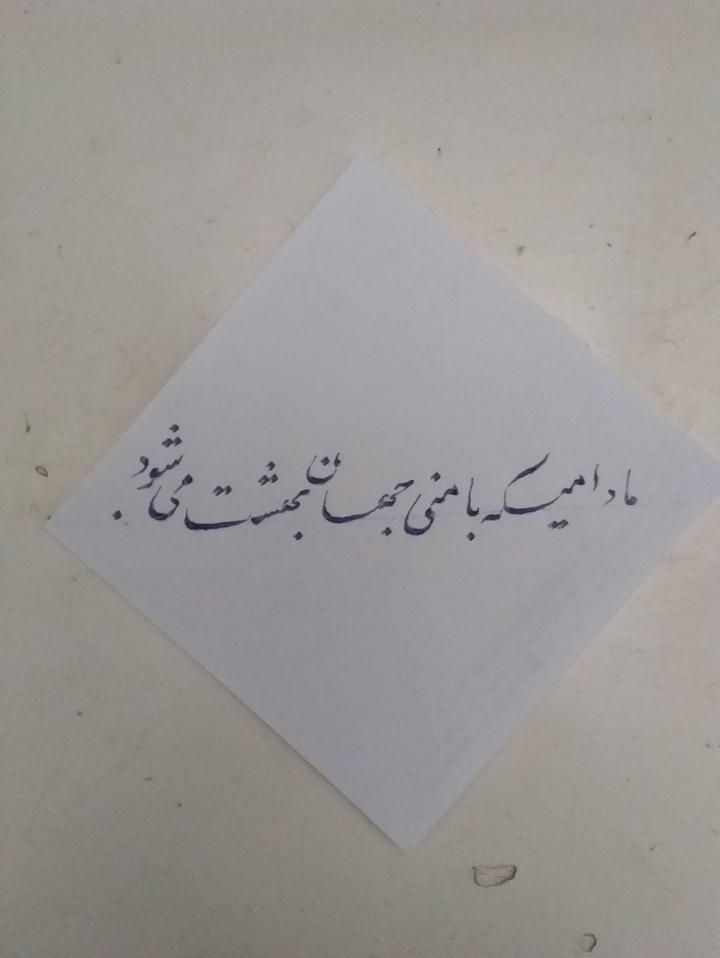 مادامیکه با منی جهان بهشت می شود.